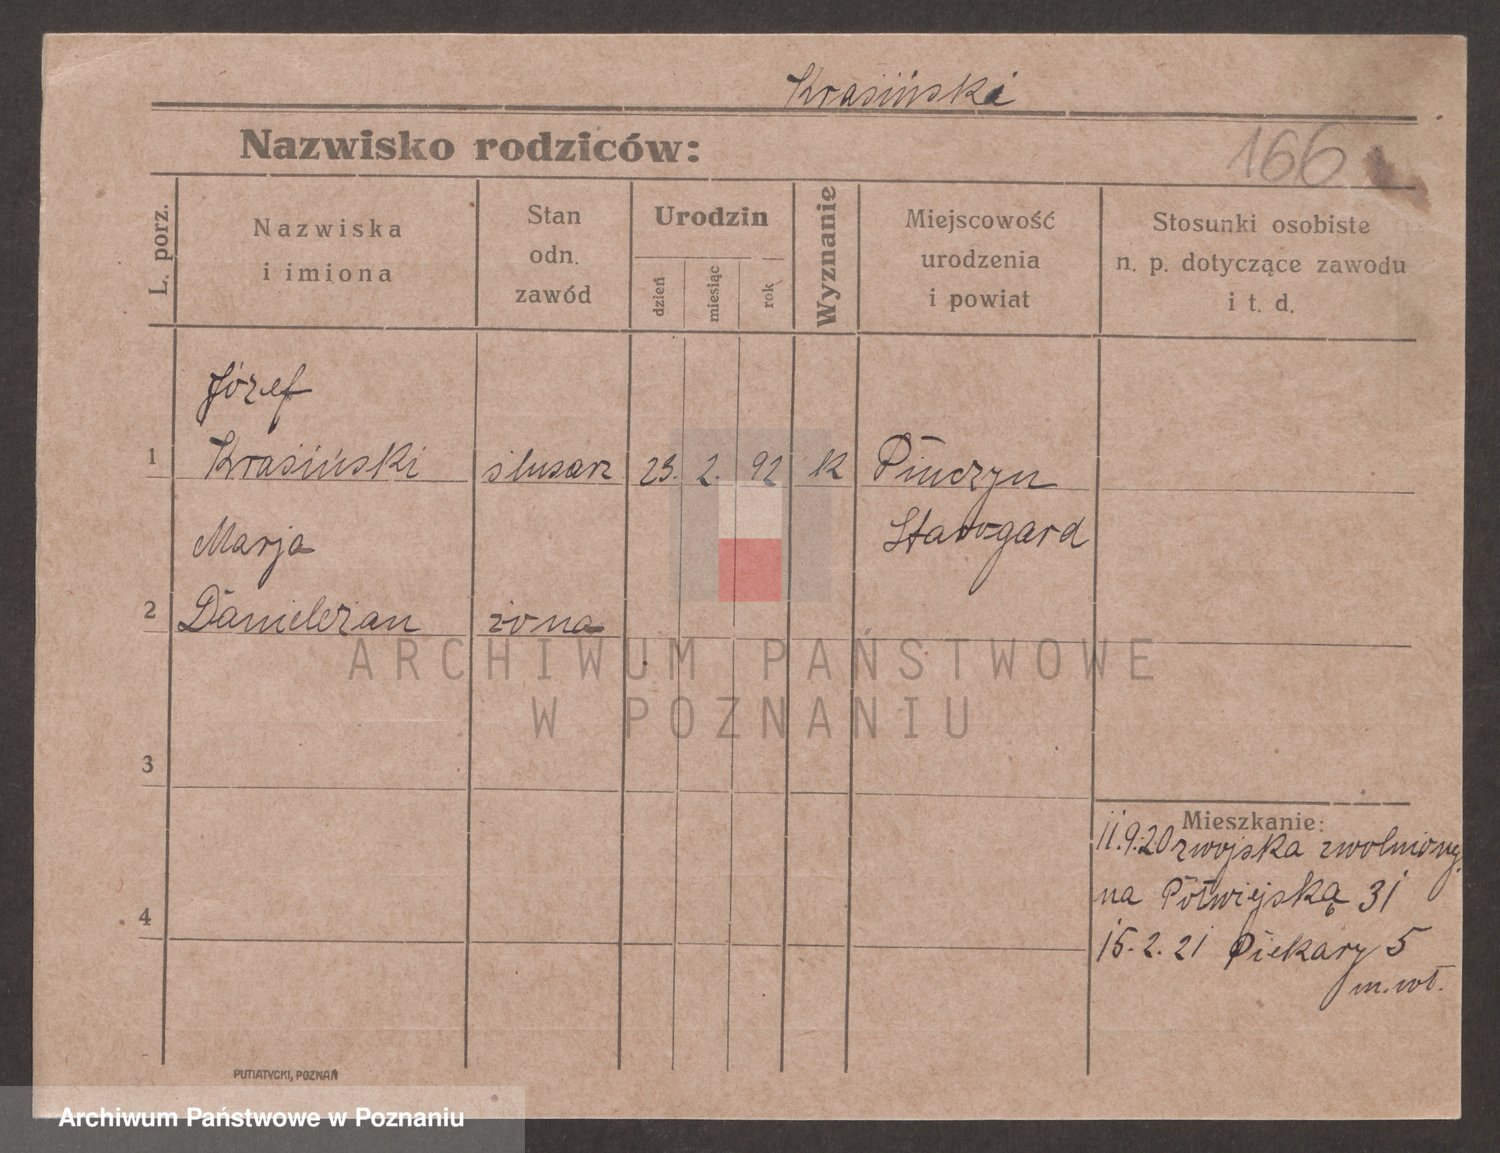 Krasiński
Nazwisko rodziców:
166
L. porz.
Nazwiska
i imiona
Stan
odn.
zawód
Urodzin
dzień
miesiąc
rok
Wyznanie
Miejscowość
urodzenia
i powiat
Stosunki osobiste
n. p. dotyczące zawodu
i t. d.
Józef
1 Krasiński ślusarz 23. 2. 92 k Pinczyn
Marja Starogard
2 żona
3
Mieszkanie:
11.9.20 z wojska zwolniony
na Półwiejską 31
4
15.2.21 Piekary 5
m. wł.
PUTIATYCKI, POZNAŃ
ARCHIWUM PAŃSTWOWE
W POZNANIU
Archiwum Państwowe w Poznaniu